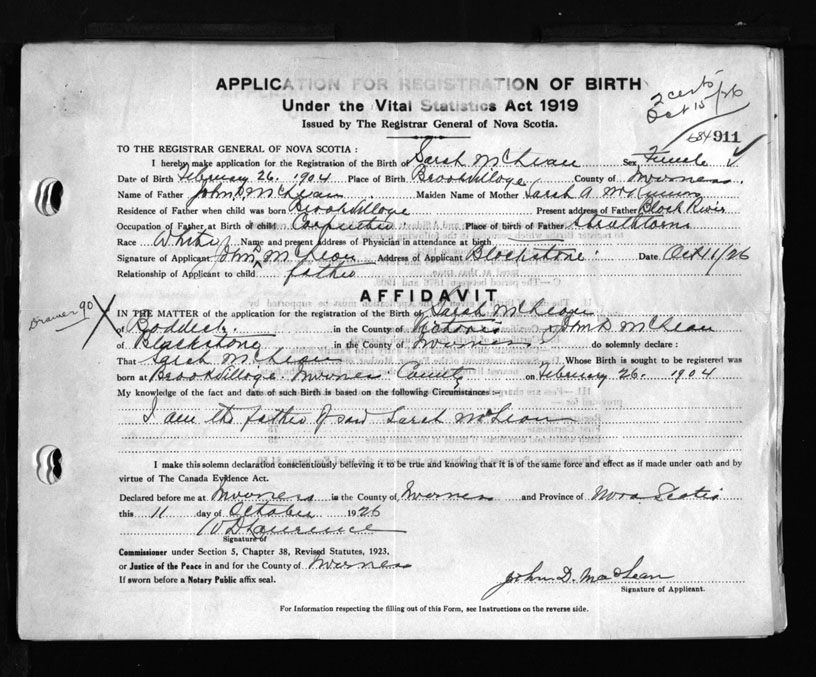 APPLICATION FOR REGISTRATION OF BIRTH
Under the Vital Statistics Act 1919
2 certs
Oct 15/26
Issued by The Registrar General of Nova Scotia.
684 911
TO THE REGISTRAR GENERAL OF NOVA SCOTIA :
I hereby make application for the Registration of the Birth of Sarah McLean Sex Female
Date of Birth February 26. 1904 Place of Birth Brook Village County of Inverness.
Name of Father John D. McLean Maiden Name of Mother Sarah A.
Residence of Father when child was born Brook Village Present address of Father Black River
Occupation of Father at Birth of child Carpenter Place of birth of Father Strathlorne
Race White Name and present address of Physician in attendance at birth
Signature of Applicant John D McLean Address of Applicant Blackstone Date Oct 11/26
Relationship of Applicant to child father
AFFIDAVIT
Drawer 90
IN THE MATTER of the application for the registration of the Birth of Sarah McLean
of Baddeck. in the County of Victoria John D McLean
of Blackstone in the County of Inverness do solemnly declare :
That Sarah McLean Whose Birth is sought to be registered was
born at Brook Village Inverness County on February 26. 1904
My knowledge of the fact and date of such Birth is based on the following Circumstances :-
I am the father of said Sarah McLean
I make this solemn declaration conscientiously believing it to be true and knowing that it is of the same force and effect as if made under oath and by
virtue of The Canada Evidence Act.
Declared before me at Inverness in the County of Inverness and Province of Nova Scotia
this 11 day of October 1926
W D Lawrence
Signature of
Commissioner under Section 5, Chapter 38, Revised Statutes, 1923,
or Justice of the Peace in and for the County of Inverness
If sworn before a Notary Public affix seal.
John D. MacLean
Signature of Applicant.
For Information respecting the filling out of this Form, see Instructions on the reverse side.